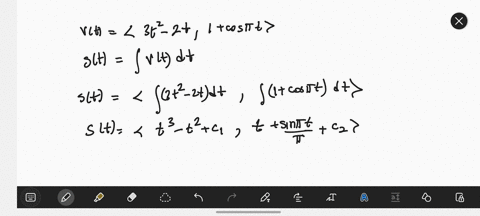 v(t) = < 3t² - 2t, 1 + cosπt >
s(t) = ∫ v(t) dt
s(t) = < ∫(3t² - 2t)dt , ∫(1 + cosπt) dt >
s(t) = < t³ - t² + c₁ , t + sinπt/π + c₂ >